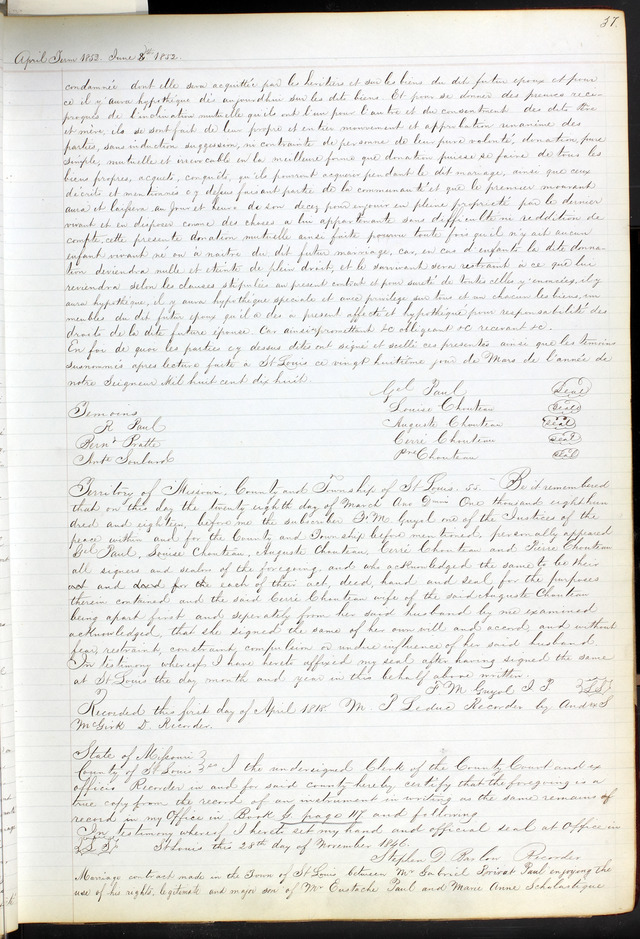 37.
April Term 1852. June 8th 1852.
condamnée dont elle sera acquittée par les heritiers et sur les biens du dit futur epoux et pour
ce il y aura hypothèque des aujourdhui sur les dits biens. Et pour se donner des preuves reci-
proques de l'inclination mutuelle qu'ils ont l'un pour l'autre et du consentement des dits
et mère, ils se sont fait de leur propre et entier mouvement et approbation unanime des
parties, sans induction suggession, ni contrainte de personne de leur pure volonté, donation, pure
simple, mutuelle et irrevocable en la meilleure forme que donation puisse se faire de tous les
biens propres, acquets, conquets, qu'ils pourront acquerir pendant le dit mariage, ainsi que ceux
décrits et mentionnés cy dessus faisant partie de la communauté et que le premier mourant
aura et laissera au Jour et heure de son decez pour enjouir en pleine proprieté par le dernier
vivant et en disposer comme des choses a lui appartenante sans difficulté ne reddition de
compte, cette presente donation mutuelle ainsi faite pourvu toute fois qu'il n'y ait aucun
enfant vivant né ou à naitre du dit futur marriage, car, en cas d'enfants la dite dona-
tion deviendra nulle et éteinte de plein droit, et le survivant sera restraint à ce que lui
reviendra selon les clauses stipulées au present contrat et pour sureté de toutes celles y enoncées, il y
aura hypothèque, il y aura hypothèque speciale et avec privilege sur tous et un chacun les biens, im-
meubles du dit futur epoux qu'il a des a present affecté et hypothèque pour responsabilité des
droits de la dite future épouse. Car ainsi promettent &c obligeant &c recevant &c.
En foi de quoi les parties cy dessus dites ont signé et scellé ces presentes ainsi que les temoins
susnommés apres lecture faite a St Louis ce vingt huitième jour de Mars de l'année de
notre Seigneur Mil huit cent dix huit.
Gel Paul Seal
Temoins Louise Chouteau Seal
R Paul Auguste Chouteau Seal
Bernd Pratte Cerré Chouteau Seal
Ante Soulard Pre Chouteau Seal
Territory of Missouri, County and Township of St Louis. ss. Be it remembered
that on this day the twenty eighth day of March Ano Domini One thousand eight hun
dred and eighteen, before me the subscriber F. M. Guyol one of the Justices of the
peace within and for the County and Township before mentioned, personally appeared
Gel Paul, Louise Chouteau, Auguste Chouteau, Cerré Chouteau and Pierre Chouteau
all signers and sealers of the foregoing, and who acknowledged the same to be their
act and deed for the each of their act, deed, hand and seal, for the purposes
therein contained and the said Cerré Chouteau wife of the said Auguste Chouteau
being apart first and seperately from her said husband by me examined
acknowledged, that she signed the same of her own will and accord, and without
fear, restraint, constraint, compulsion or undue influence of her said husband.
In testimony whereof I have hereto affixed my seal after having signed the same
at St Louis the day month and year in this behalf above written.
F M Guyol J. P. L.S.
Recorded this first day of April 1818. M. P Leduc Recorder by And S
McGirk D. Recorder.
State of Missouri
County of St Louis ss I the undersigned Clerk of the County Court and ex
officio Recorder in and for said county hereby certify that the foregoing is a
true copy from the record of an instrument in writing as the same remains of
record in my Office in Book G page 117 and following
In testimony whereof I hereto set my hand and official seal at Office in
L.S. St Louis this 28th day of November 1846.
Stephen D Barlow Recorder
Marriage contract made in the Town of St Louis between Mr Gabriel Paul enjoying the
use of his rights, legitimate and major son of Mr Eustache Paul and Marie Anne Scholastique